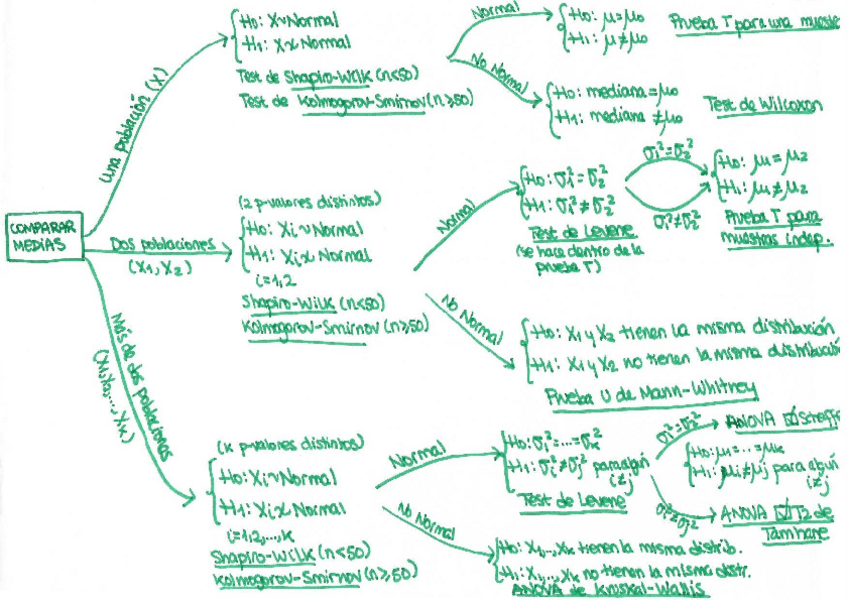 COMPARAR
MEDIAS
Una población (X)
H0: X~Normal
H1: X≁Normal
Test de Shapiro-Wilk (n<50)
Test de Kolmogorov-Smirnov (n≥50)
Normal
H0: μ=μ0
H1: μ≠μ0
Prueba T para una muestr
No Normal
H0: mediana=μ0
H1: mediana ≠μ0
Test de Wilcoxon
Dos poblaciones
(X1, X2)
(2 p-valores distintos)
H0: Xi~Normal
H1: Xi≁Normal
i=1,2
Shapiro-Wilk (n<50)
Kolmogorov-Smirnov (n≥50)
Normal
H0: σ1²=σ2²
H1: σ1²≠σ2²
Test de Levene
(se hace dentro de la
prueba T)
σ1²=σ2²
σ1²≠σ2²
H0: μ1=μ2
H1: μ1≠μ2
Prueba T para
muestras indep.
No Normal
H0: X1 y X2 tienen la misma distribución
H1: X1 y X2 no tienen la misma distribució
Prueba U de Mann-Whitney
Más de dos poblaciones
(X1, X2, ..., Xk)
(k p-valores distintos)
H0: Xi~Normal
H1: Xi≁Normal
i=1,2,...,k
Shapiro-Wilk (n<50)
Kolmogorov-Smirnov (n≥50)
Normal
H0: σ1²=...=σk²
H1: σi²≠σj² para algún
i≠j
Test de Levene
σ1²=σ2²
ANOVA ☑Scheffé
H0: μ1=...=μk
H1: μi≠μj para algún
i≠j
σi²≠σj²
ANOVA ☑T2 de
Tamhane
No Normal
H0: X1,..,Xk tienen la misma distrib.
H1: X1,..,Xk no tienen la misma distr.
ANOVA de Kruskal-Wallis